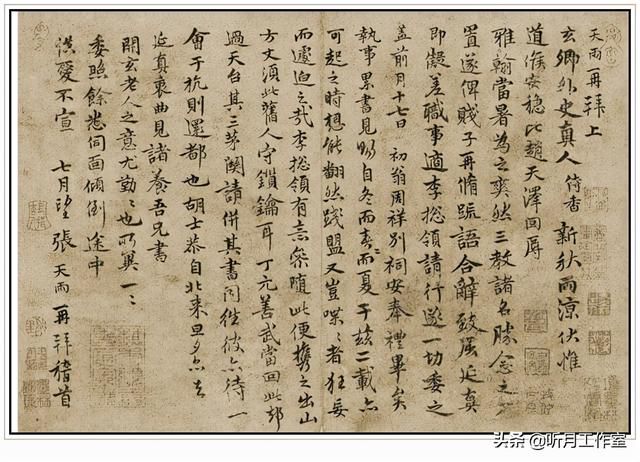 天雨再拜上
玄卿外史真人侍香 新秋雨凉伏惟
道候安穩比趙天澤回辱
雅翰當暑為之爽然三教諸名勝念之
置遂俾賤子再脩疏語合辭致延真
即礙差職事適李総領請行遂一切委之
蓋前月十七日 初翁周祥别祠安奉禮畢矣
執事累書見賜自冬而春而夏于茲二載亦
可起之時想能翻然踐盟又豈喋〻者狂妄
而遽迫之哉李総領有意參随此便携之出山
方丈須此舊人守鎖鑰耳丁元善武當回此郊
過天台其三茅闕請併其書同往彼亦待一
會于杭則還都也胡士恭自北来旦夕亦去
延真衷曲見諸養吾兄書
開玄老人之意尤勤〻也所冀一〻
委照餘悉伺面傾倒 途中
愛不宣 七月望張天雨再拜稽首
头条 @听月工作室